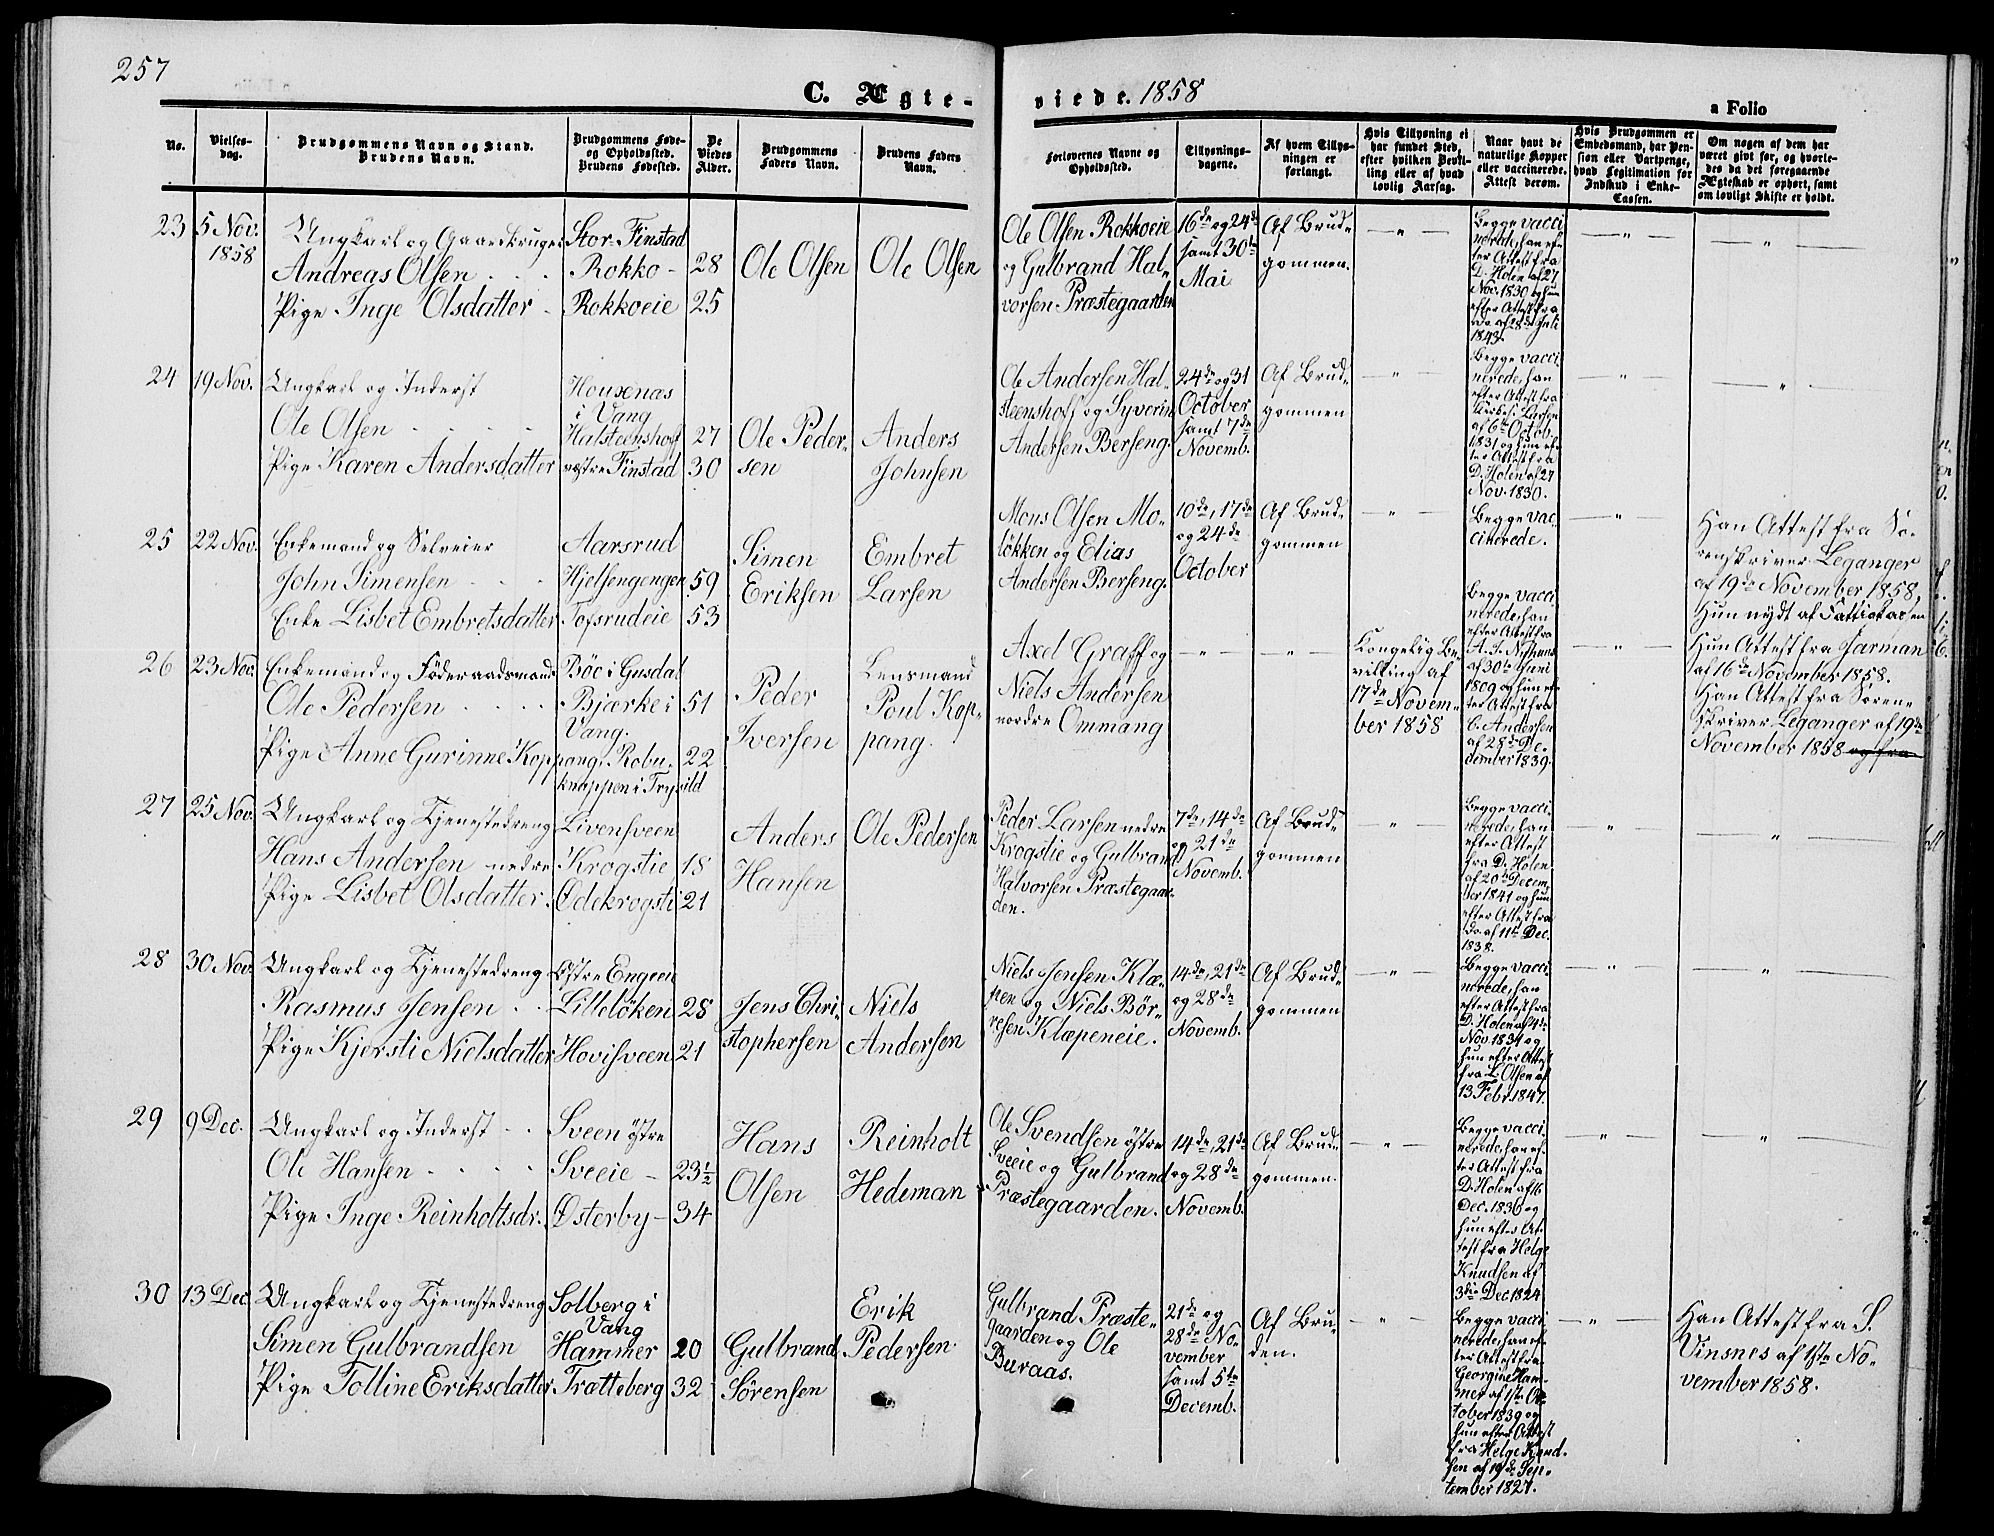 257
C. Ægte-
viede. 1858
a Folio
No.
Vielses-
dag.
Brudgommens Navn og Stand.
Brudens Navn.
Brudgommens Føde-
og Opholdssted.
Brudens Fødested.
De
Viedes
Alder.
Brudgommens
Faders Navn.
Brudens Faders
Navn.
Forlovernes Navne og
Opholdssted.
Tillysnings-
dagene.
Af hvem Tillys-
ningen er
forlangt.
Hvis Tillysning ei
har fundet Sted,
efter hvilken Bevil-
ling eller af hvad
lovlig Aarsag.
Naar havt de
naturlige Kopper
eller vaccinerede.
Attest derom.
Hvis Brudgommen er
Embedsmand, har Pen-
sion eller Vartpenge,
hvad Legitimation for
Indskud i Enke-
Cassen.
Om nogen af dem har
været gift før, og hvorle-
des da det foregaaende
Ægteskab er ophørt, samt
om lovligt Skifte er holdt.
23 5 Nov.
1858
Ungkarl og Gaardbruger
Andreas Olsen
Pige Inge Olsdatter
Stor-Finstad
Rokko - 28
Rokkoeie 25
Ole Olsen
Ole Olsen
Ole Olsen Rokkoeie
og Gulbrand Hal-
vorsen Præstegaarden
16de og 24de
samt 30te
Mai
Af Brud-
gommen.
Begge vacci
nerede, han ef-
ter Attest fra
D. Holen af 27
Nov. 1830 og hun
efter Attest fra
do af 28de Juli
1843.
24 19 Nov.
Ungkarl og Inderst
Ole Olsen
Pige Karen Andersdatter
Housenas
i Vang
Halsteenshoff 27
vestre Finstad 30
Ole Peder-
sen
Anders
Johnsen
Ole Andersen Hal-
steenshoff og Syverin
Andersen Berseng.
24de og 31
October
samt 7de
Novemb.
Af Brud-
gommen
Begge vacci
nerede, han
efter Attest fra
Larsen
af 6te Octob.
1831 og hun ef-
ter Attest fra
D. Holen af 27
Nov. 1830.
25 22 Nov.
Enkemand og Selveier
John Simensen
Enke Lisbet Embretsdatter
Aarsrud
Hjelsengengen 59
Tofsrudeie 53
Simen
Eriksen
Embret
Larsen
Mons Olsen Mo-
løkken og Elias
Andersen Berseng.
10de, 17de
og 24de
October
Af Brud-
gommen
Begge vac-
cinerede.
Han Attest fra So-
renskriver Leganger
af 19de November 1858,
Hun nydt af Fattigkassen
26 23 Nov.
Enkemand og Föderaadsmand
Ole Pedersen
Pige Anne Gurinne Koppang.
Böe i Gusdal
Bjærke i 51
Vang.
Robu- 22
knappen i Trysild
Peder
Iversen
Lensmand
Poul Kop-
pang.
Axel Graff og
Niels Andersen
nordre Ommang
Kongelig Be-
villing af
17de Novem-
ber 1858
Begge vacci
nerede, han
efter Attest fra
af 30te Juni
1809 og hun ef-
ter Attest fra
C. Andersen
af 28de De-
cember 1839.
Hun Attest fra Jarman
af 16de November 1858.
Han Attest fra Soren-
skriver Leganger af 19de
November 1858 og fra
27 25 Nov.
Ungkarl og Tjenestedreng
Hans Andersen
Pige Lisbet Olsdatter.
Livensveen
nedre Krogstie 18
Ødekrogsti 21
Anders
Hansen
Ole Pedersen
Peder Larsen nedre
Krogstie og Gulbrand
Halvorsen Præstegaar-
den.
7de, 14de
og 21de
Novemb.
Af Brud-
gommen
Begge vacci-
nerede, han
efter Attest
fra D. Holen
af 20de Decem-
ber 1841 og hun
efter Attest fra
do. af 11te Dec.
1838.
28 30 Nov.
Ungkarl og Tjenestedreng
Rasmus Jensen
Pige Kjersti Nielsdatter
Østre Engeen
Lilleløken 28
Hovisveen 21
Jens Chri-
stophersen
Niels
Andersen
Niels Jensen Klæ-
pen og Niels Bör-
resen Klæpeneie.
14de, 21de
og 28de
Novemb.
Af Brud-
gommen
Begge vacci
nerede, han
efter Attest fra
D. Holen af 4de
Nov 1831 og
hun efter Attest
fra L. Olsen af
13 Febr. 1847.
29 9 Dec.
Ungkarl og Inderst
Ole Hansen
Pige Inge Reinholtsdr.
Sveen østre
Sveeie - 23½
Østerby - 34
Hans
Olsen
Reinholt
Hedeman
Ole Svendsen østre
Sveeie og Gulbrand
Præstegaarden.
14de, 21de
og 28de
Novemb.
Af Brud-
gommen.
Begge vacci
nerede, han ef-
ter Attest fra
D. Holen af 16
Dec. 1836 og
hun efter At-
test fra Helge
Knudsen af
3die Dec 1824
30 13 Dec
Ungkarl og Tjenestedreng
Simen Gulbrandsen
Pige Tolline Eriksdatter
Solberg i
Vang
Hammer 20
Trætteberg 32
Gulbrand
Sörensen
Erik
Pedersen
Gulbrand Præste-
gaarden og Ole
Buraas.
21de og
28de No-
vember
samt 5te
Decemb.
Af Bru-
den.
Begge vacci
nerede, han ef-
ter Attest fra
Georgine Ham-
mer af 1ste Oc-
tober 1839 og
hun efter Attest
fra Helge Knud-
sen af 19de Sep-
tember 1827.
Han Attest fra S.
Vinsnes af 1ste No-
vember 1858.